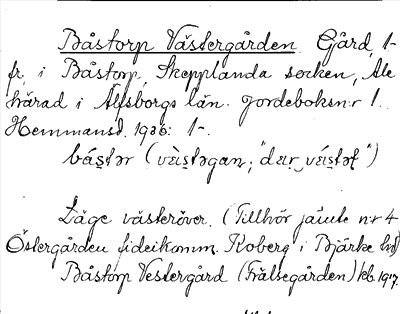 Båstorp Västergården Gård, 1-
fr. i Båstorp, Skepplanda socken, Ale
härad i Älfsborgs län. Jordeboksnr 1.
Hemmansd. 1936: 1-.
Läge västeröver. (Tillhör jämte nr 4
Östergården fideikomm. Koberg i Bjärke hd)
Båstorp Vestergård (Frälsegården) kb. 1917.